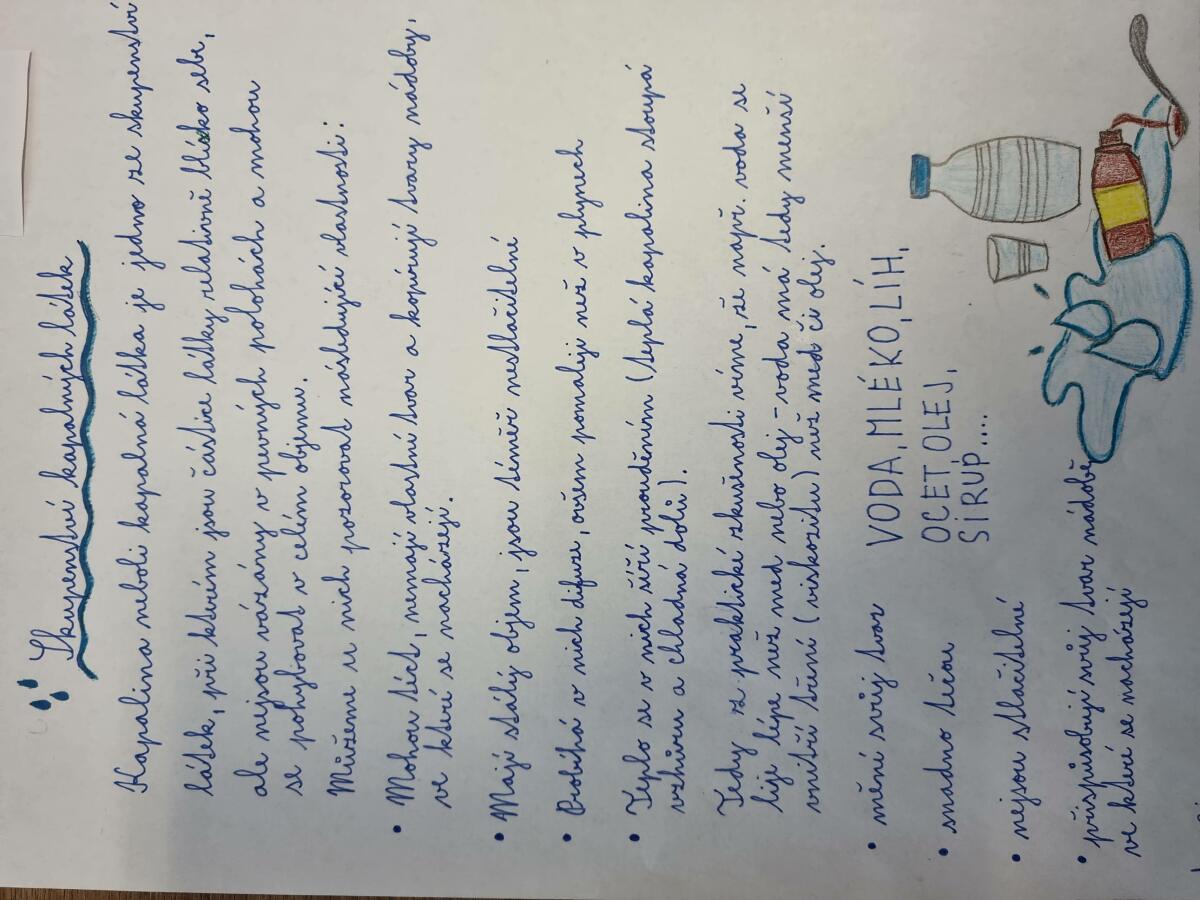 Skupenství kapalných látek
Kapalina neboli kapalná látka je jedno ze skupenství
látek, při kterém jsou částice látky relativně blízko sebe,
ale nejsou vázány v pevných polohách a mohou
se pohybovat v celém objemu.
Můžeme u nich pozorovat následující vlastnosti:
• Mohou téct, nemají vlastní tvar a kopírují tvary nádoby,
ve které se nacházejí.
• Mají stálý objem, jsou téměř nestlačitelné
• Probíhá v nich difuze, ovšem pomaleji než v plynech
• Teplo se v nich šíří prouděním (teplá kapalina stoupá
vzhůru a chladná dolů).
Tedy z praktické zkušenosti víme, že např. voda se
lije lépe než med nebo olej - voda má tedy menší
vnitří tření (viskozitu) než med či olej.
• mění svůj tvar
• snadno tečou
• nejsou stlačitelné
• přispůsobují svůj tvar nádobě
ve které se nacházejí
VODA, MLÉKO, LÍH,
OCET, OLEJ,
SIRUP,....